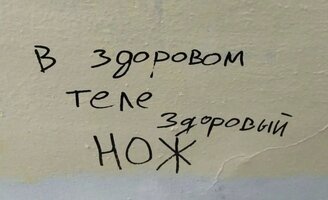 В здоровом
теле
здоровый
НОЖ